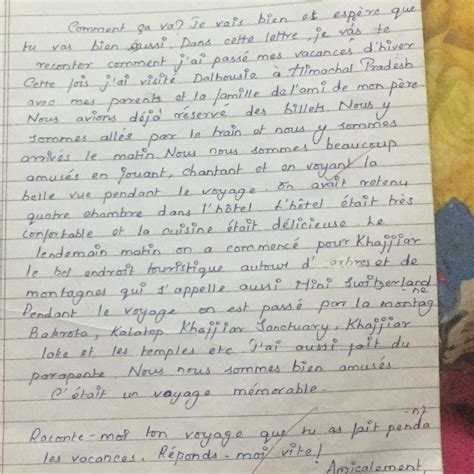 Comment ça va? Je vais bien et espère que
tu vas bien aussi. Dans cette lettre, je vas te
reconter comment j'ai passé mes vacances d'hiver
Cette fois j'ai visité Dalhousie à Himachal Pradesh
avec mes parents et la famille de l'ami de mon père.
Nous avions déjà réservé des billets. Nous y
sommes allés par le train et nous y sommes
arrivés le matin. Nous nous sommes beaucoup
amusés en jouant, chantant et en voyant la
belle vue pendant le voyage. On avait retenu
quatre chambre dans l'hôtel. L'hôtel était très
confortable et la cuisine était délicieuse. Le
lendemain matin on a commencé pour Khajjiar
le bel endroit touristique autour d'arbres et de
montagnes qui s'appelle aussi Mini Switzerland
Pendant le voyage on est passé par la montagne
Bakrota, Kalatop Khajjiar Sanctuary, Khajjiar
lake et les temples etc. J'ai aussi fait du
parapente. Nous nous sommes bien amusés
C'était un voyage mémorable.
Raconte-moi ton voyage que tu as fait pendant
les vacances. Réponds-moi vite!
Amicalement,